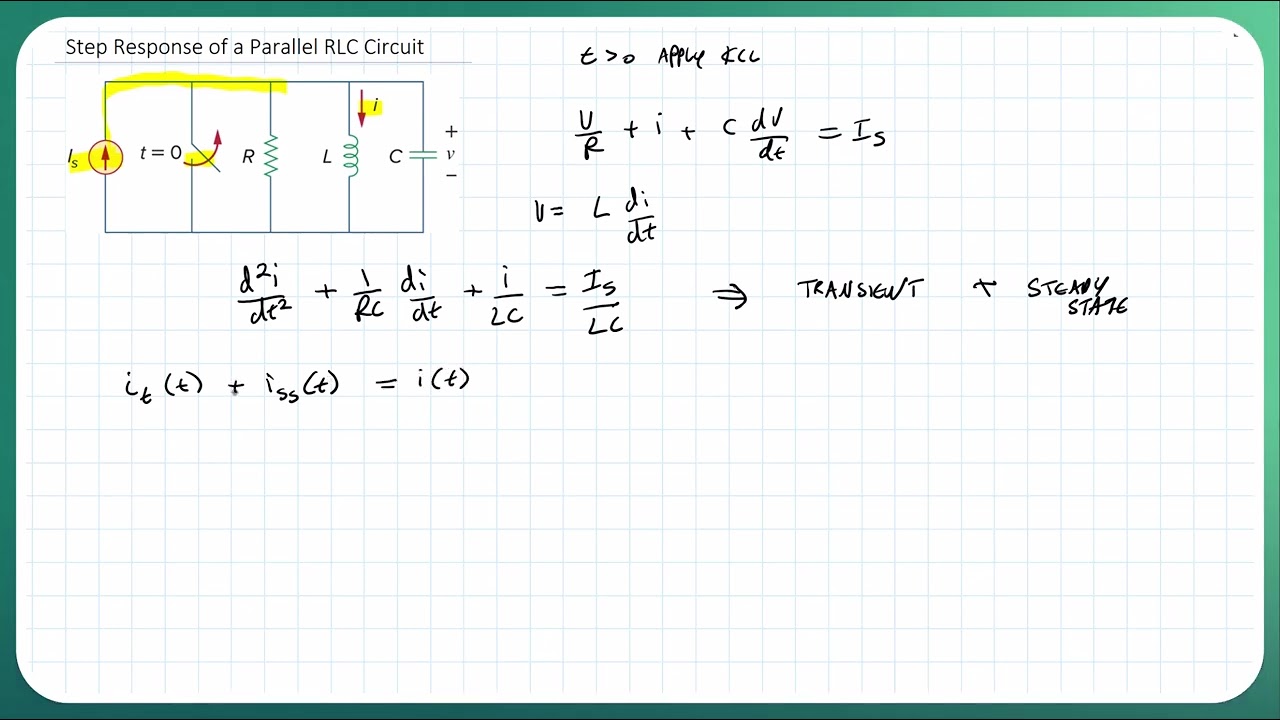 Step Response of a Parallel RLC Circuit
t>0 APPLY KCL
i
I_s t = 0 R L C + v −
V/R + i + C dV/dt = I_s
V = L di/dt
d²i/dt² + 1/RC di/dt + i/LC = I_s/LC ⇒ TRANSIENT + STEADY STATE
i_t(t) + i_ss(t) = i(t)